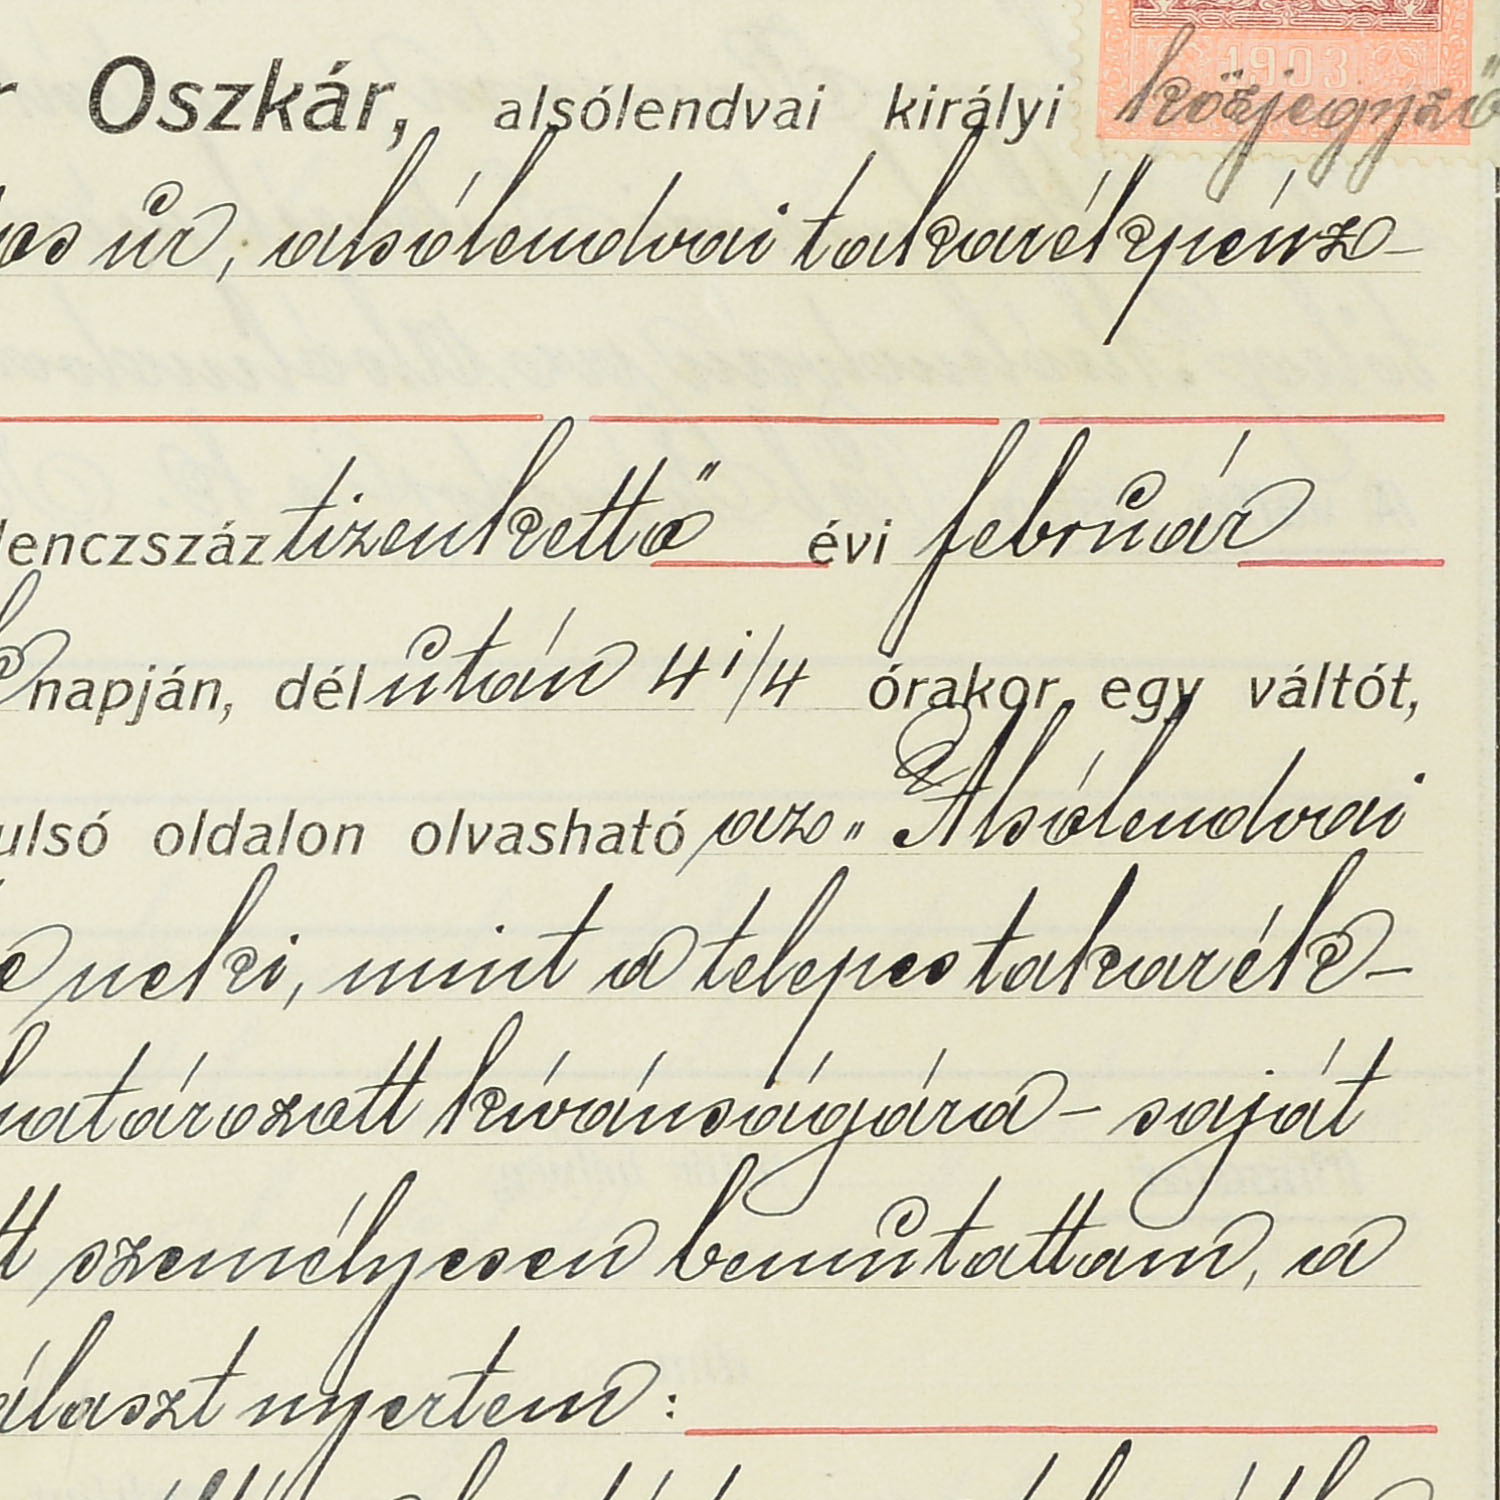 Oszkár, alsólendvai királyi közjegyző
úr, alsólendvai takarékpénz-
lenczszáz tizenkettő évi február
napján, délután 4 1/4 órakor egy váltót,
ulsó oldalon olvasható az „Alsólendvai
neki, mint a telepes takarék-
határozott kívánságára - saját
személyesen bemutattam, a
álaszt nyertem:
1903